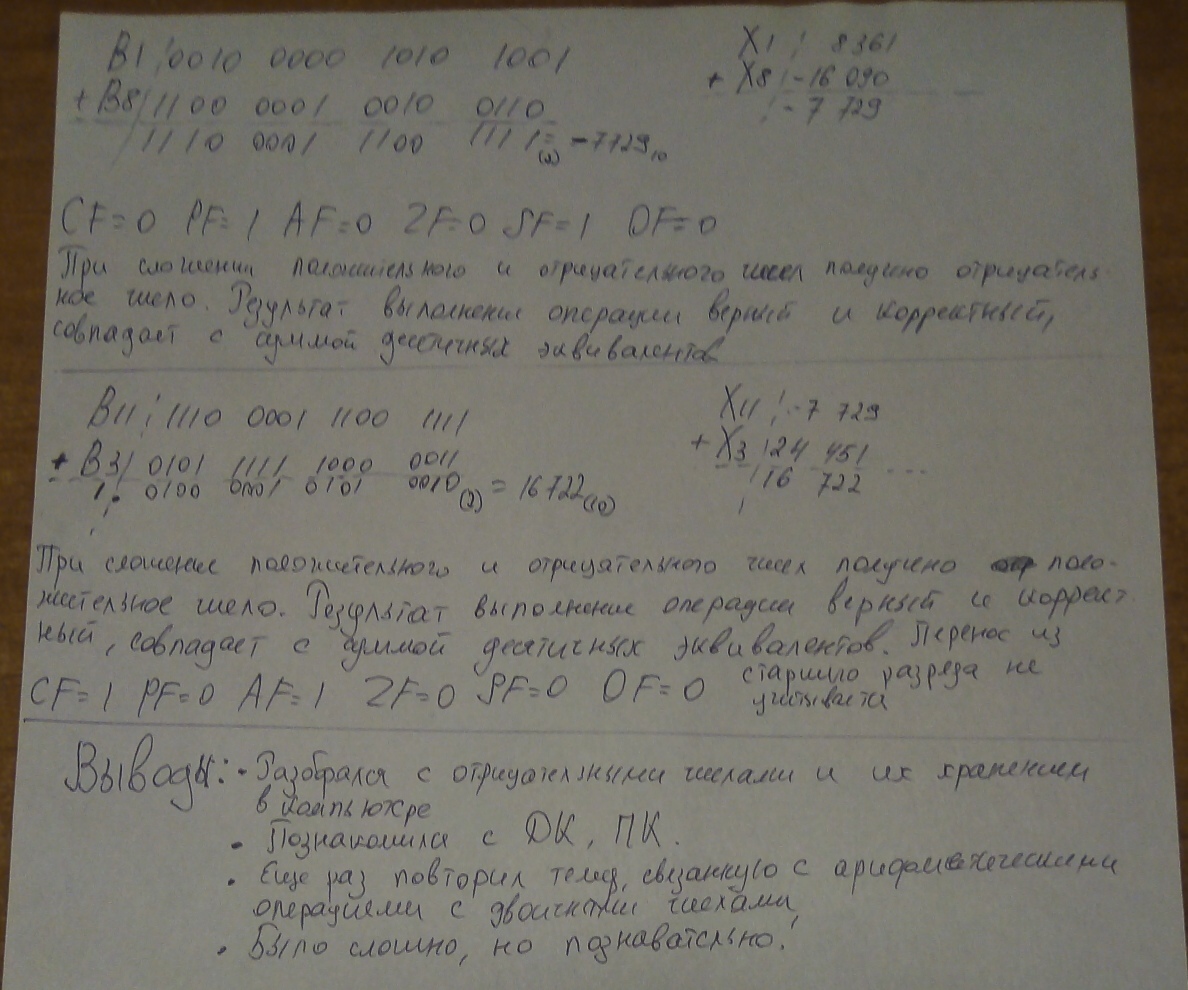 B1 0010 0000 1010 1001
X1 8361
+ B8 1100 0001 0010 0110
+ X8 -16 090
1110 0001 1100 1111(2) = -7729 10
-7 729
CF=0 PF=1 AF=0 ZF=0 SF=1 OF=0
При сложении положительного и отрицательного чисел получено отрицатель-
ное число. Результат выполнение операции верный и корректный,
совпадает с суммой десятичных эквивалентов
B11 1110 0001 1100 1111
X11 -7 729
+ B3 0101 1111 1000 0011
+ X3 24 451
1 0100 0001 0101 0010(2) = 16722(10)
16 722
При сложение положительного и отрицательного чисел получено поло-
жительное число. Результат выполнение операции верный и коррект-
ный, совпадает с суммой десятичных эквивалентов. Перенос из
старшего разряда не
CF=1 PF=0 AF=1 ZF=0 SF=0 OF=0
Выводы: • Разобрался с отрицательными числами и их хранением
в компьютере
• Познакомился с ДК, ПК.
• Еще раз повторил тему, связанную с арифметическими
операциями с двоичными числами,
• Было сложно, но познавательно!